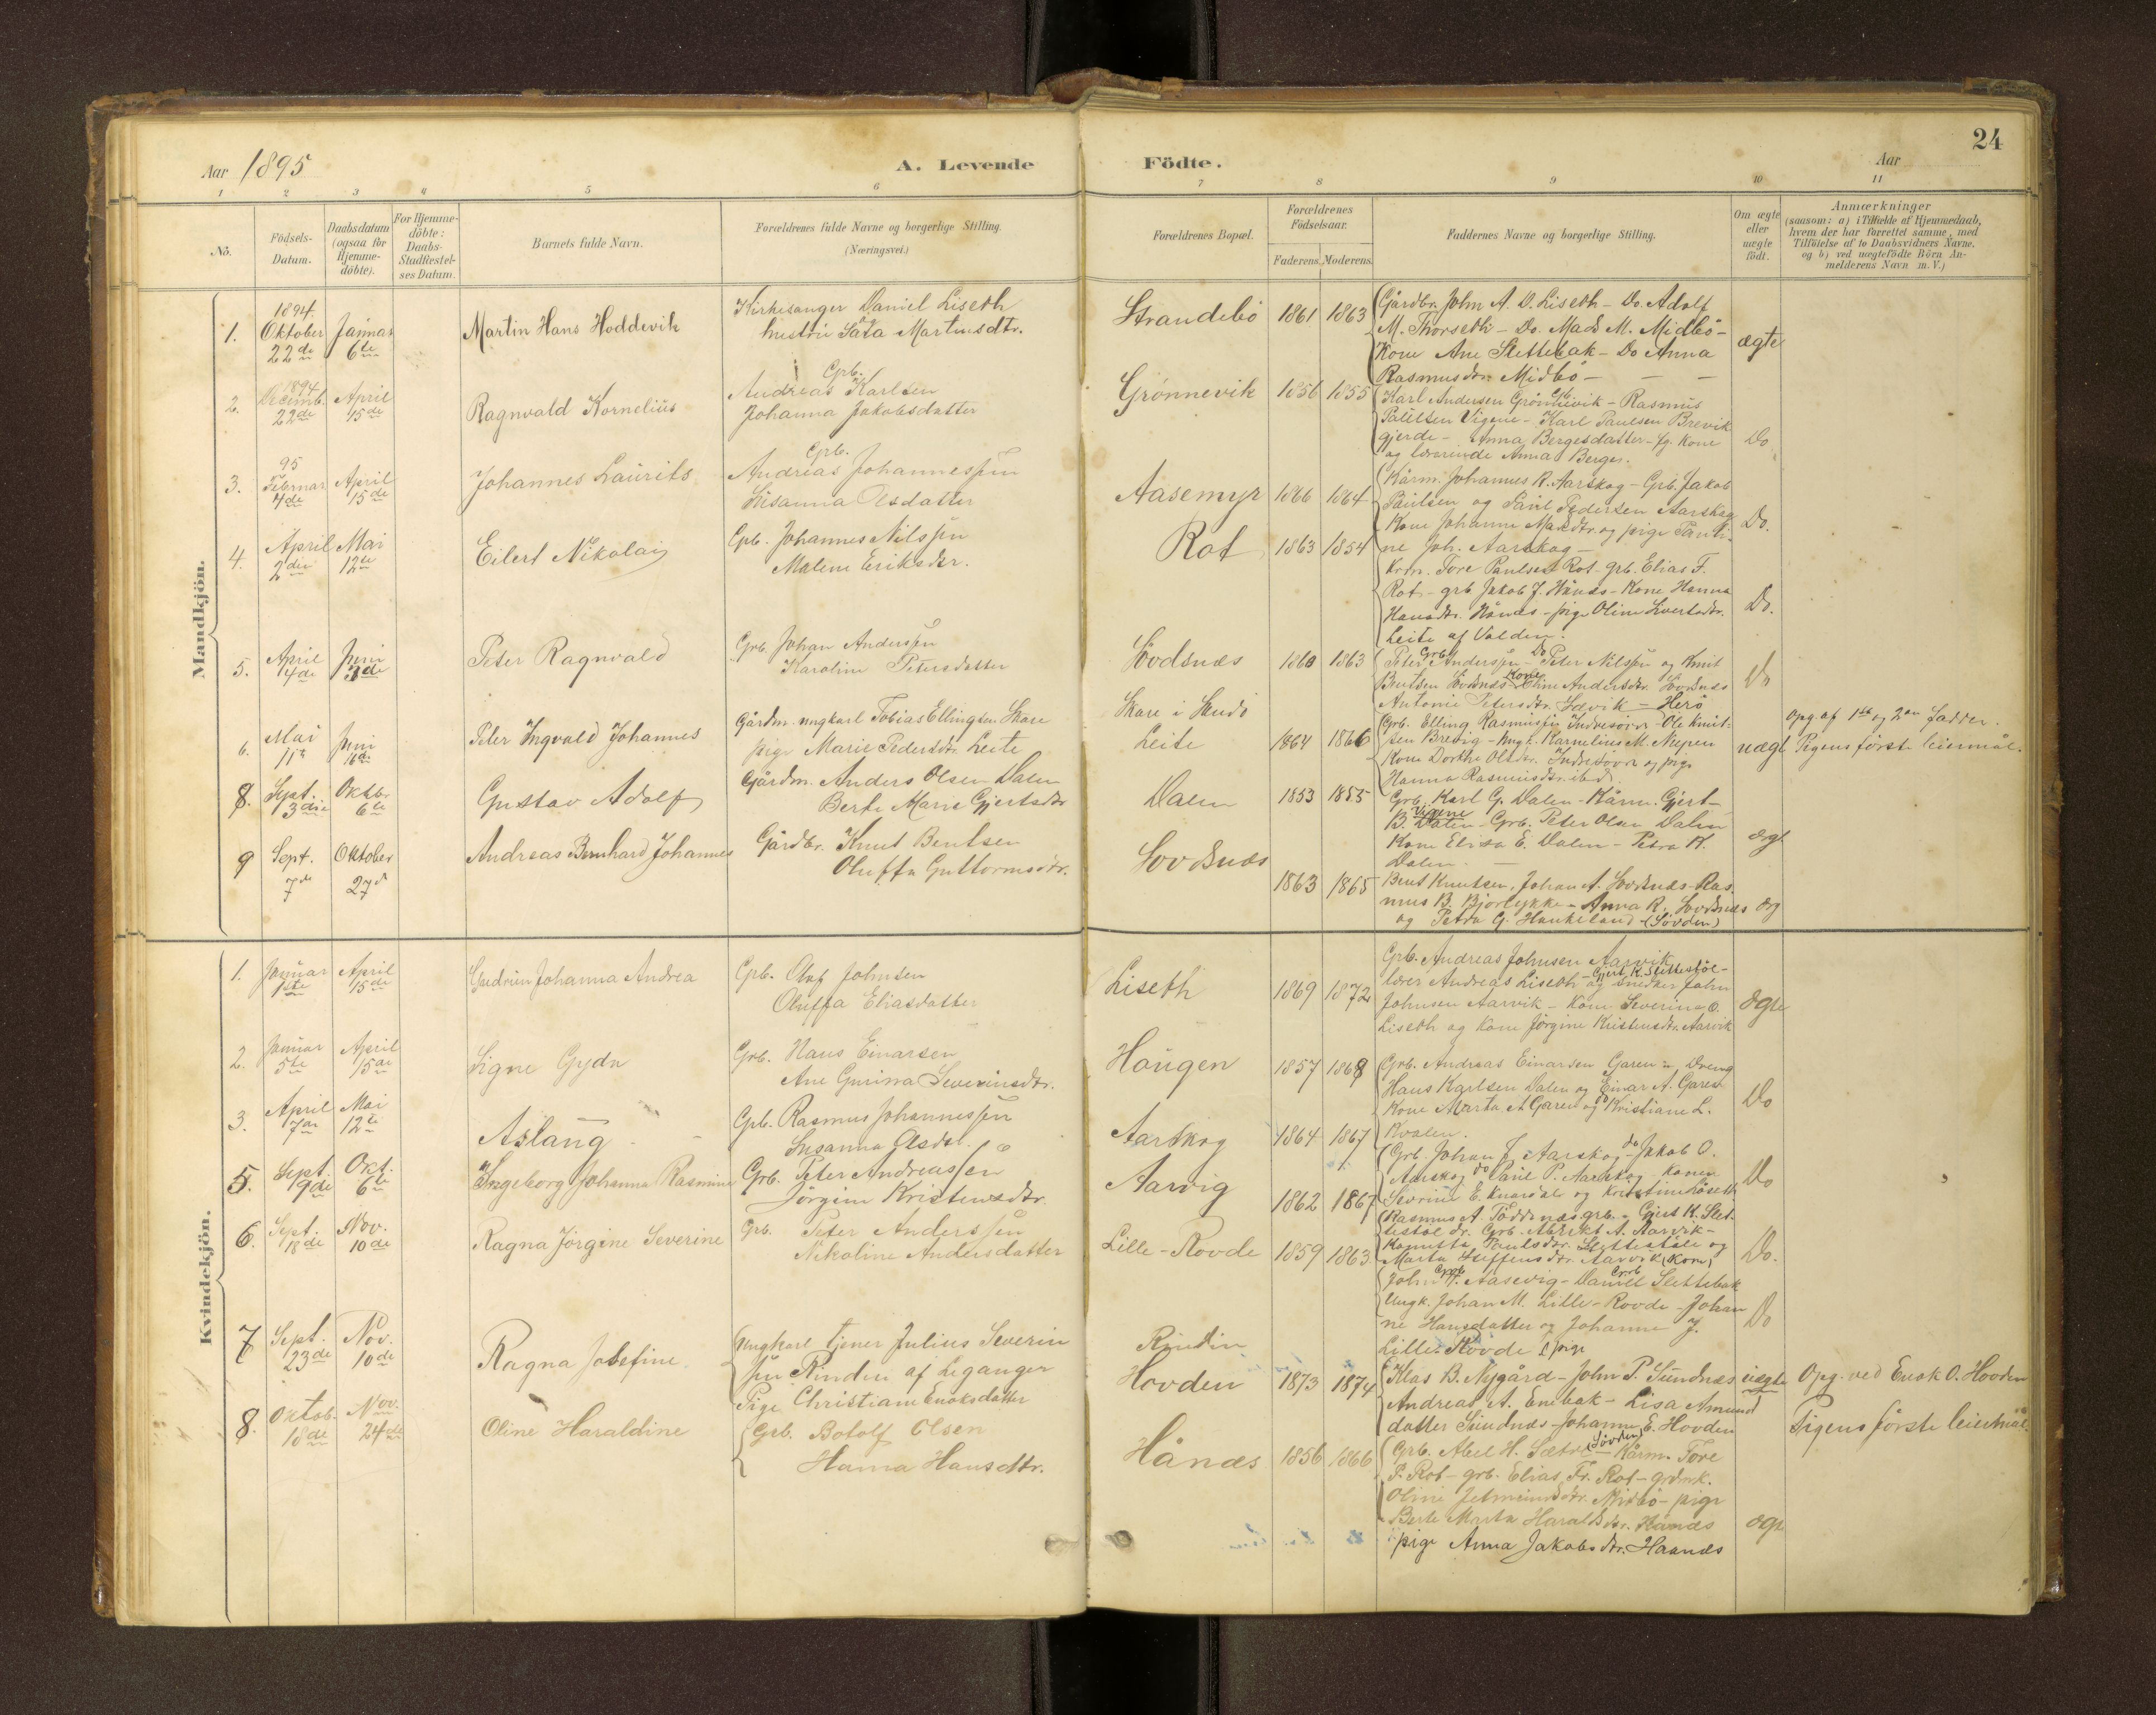 24
Aar 1895
A. Levende
Födte.
Aar
1 2 3 4 5 6 7 8 9 10 11
No.
Födsels-
Datum.
Daabsdatum
(ogsaa for
Hjemme-
döbte).
For Hjemme-
döbte:
Daabs-
Stadfæstel-
ses Datum.
Barnets fulde Navn.
Forældrenes fulde Navne og borgerlige Stilling.
(Næringsvei.)
Forældrenes Bopæl.
Forældrenes
Födselsaar.
Faderens. Moderens.
Faddernes Navne og borgerlige Stilling.
Om ægte
eller
uægte
födt.
Anmærkninger
(saasom: a) i Tilfælde af Hjemmedaab,
hvem der har forrettet samme, med
Tilföielse af to Daabsvidners Navne,
og b) ved uægtefödte Börn An-
melderens Navn m. V.)
Mandkjön.
1.
1894.
Oktober
22de
Januar
6te
Martin Hans Hoddevik
Kirkesanger Daniel Liseth
hustru Martinsdtr.
Strandebö
1861 1863
Gårdbr. John A. D. Liseth - Do. Adolf
M. Thorseth - Do. Mads M. Midbö -
Kone Ane Slettebak - Do Anna
Rasmusdtr. Midbö -
ægte
2.
1894
Decemb.
22de
April
15de
Ragnvald Kornelius
Grb.
Andreas Karlsen
Johanna Jakobsdatter
Grönnevik
1856 1855
Karl Andersen Grönnevik - Rasmus
Paulsen Vigene - Karl Paulsen Brevik
gjerde - Anna Bergesdatter - kone
og Anna Berges.
Do
3.
95
Februar
4de
April
15de
Johannes Laurits
Grb.
Andreas Johannessen
Susanna Olsdatter
Aasemyr
1866 1864
Kårm. Johannes R. Aarskog - Grb. Jakob
Paulsen og Paul Pedersen Aarskog
Kone Johanne og pige Pauli-
ne Joh. Aarskog -
Do.
4.
April
2den
Mai
12te
Eilert Nikolai
Grb. Johannes Nilssen
Malene Eriksdtr.
Rot
1863 1854
Krm. Tore Paulsen Rot - grb. Elias F.
Rot - grb Jakob J. Hånds - Kone Hanna
Hansdtr. Hånæs - pige Oline Sivertsdtr.
Leite af Volden.
Do.
5.
April
14de
Juni
3de
Peter Ragnvald
Grb. Johan Anderssen
Karoline Petersdatter
Sövdsnæs
1860 1863
Grb. Do
Peter Anderssen - Peter Nilssen og Knut
Kone
Bentsen Sövdsnæs - Oline Andersdtr. Sövdsnæs
Antonie Petersdtr. Sævik - Herö
Do
6.
Mai
11te
Juni
16de
Peter Ingvald Johannes
Gårdm. ungkarl Tobias Ellingsen Skare
pige Marie Pedersdtr. Leite
Skare i Skudö
Leite
1864 1866
Grb. Elling Rasmussen Indresövde - Ole Knut-
sen Brevig - Ungk. Karnelius M. Nupen
Kone Dorthe Olsdtr. Indresövde og pige
Hanna Rasmusdtr. ibd.
uægt
Opg. af 1ste og 2den fadder.
Pigens første leiermål.
8.
Sept.
3die
Oktbr
6te
Gustav Adolf
Gårdm. Anders Olsen Dalen
Berte Marie Gjertsdtr
Dalen
1853 1855
Grb. Karl G. Dalen - Kårm. Gjert
Vigene
B. Dalen - Grb. Peter Olsen Dalen
Kone Elisa E. Dalen - Petra K.
Dalen. -
ægt.
9
Sept.
7de
Oktober
27de
Andreas Bernhard Johannes
Gårdbr. Knut Bentsen
Oluffa Guttormsdtr.
Sovdsnæs
1863 1865
Bent Knutsen, Johan A. Sovdsnæs - Ras
mus B. Bjørlykke - Anna R. Sovdsnæs
og Petra G. Haukeland (Sövden)
æg
Kvindekjön.
1.
Januar
1ste
April
15de
Gudrun Johanna Andrea
Grb. Oluf Johnsen
Oluffa Eliasdatter
Liseth
1869 1872
Grb. Andreas Johnsen Aarvik
Gjert K. Slettestöl -
lærer Andreas Liseth - og snedker John
Johnsen Aarvik - Kone Severine O.
Liseth og Kone Jörgine Kristensdtr. Aarvik
ægte
2.
Januar
5te
April
15de
Signe Gyda
Grb. Hans Einarsen
Ane Gurina Severinsdtr.
Haugen
1857 1868
Grb. Andreas Einarsen Garen - Dreng
Hans Karlsen Dalen og Einar A. Garen
Kone Marta A Garen og do Kristiane L.
Kvalen.
Do
3.
April
7de
Mai
12te
Aslaug
Grb. Rasmus Johannessen
Susanna Olsdt.
Aarskog
1864 1867
Grb. Johan J. Aarskog - do Jakob O.
Aarskog do Paul P. Aarskog - Konen
Severine E. Knardal og Kristine Löseth
Do
5.
Sept.
19de
Okt.
6te
Ingeborg Johanna Rasmine
Grb. Peter Andreassen
Jörgine Kristensdtr.
Aarvig
1862 1867
Rasmus A. Töddnæs grb. - Gjert K. Slet-
testöl do. Grb. Abrikt A. Aarvik -
Paulsdtr. Slettestöle og
Marta Steffensdtr. Aarvik (Kone)
Do.
6.
Sept.
18de
Nov.
10de
Ragna Jörgine Severine
Grb. Peter Anderssen
Nikoline Andersdatter
Lille-Rovde
1859 1863
Grb. Grb
John P. Aasevig - Daniel Slettebak
Ungk. Johan M. Lille-Rovde - Johan
ne Hansdatter og Johanne J.
Lille-Rovde pige
Do
7
Sept.
23de
Nov.
10de
Ragna Josefine.
Ungkarl tjener Julius Severin
sen Rinden af Leganger
Pige Christiane Enoksdatter
Rindin
Hovden
1873 1874
Klas B. Nygård - John P. Sundnæs
Andreas A. Enebak - Lisa Amund
datter Sundnæs - Johanne E. Hovden
uægte
Opg. ved Enok O. Hovden
Pigens første leiermål
8.
Oktob.
18de
Nov.
24de
Oline Haraldine
Grb. Botolf Olsen
Hanna Hansdtr.
Hånæs
1856 1866
(Sövden)
Grb. Abel H. Sætre - Kårm. Tore
P. Rot - grb. Elias Fr. Rot - grdmk.
Oline Jetmundsdtr. Midbö - pige
Berte Marta Haraldsdtr. Hånæs
pige Anna Jakobsdtr. Haanæs
ægte